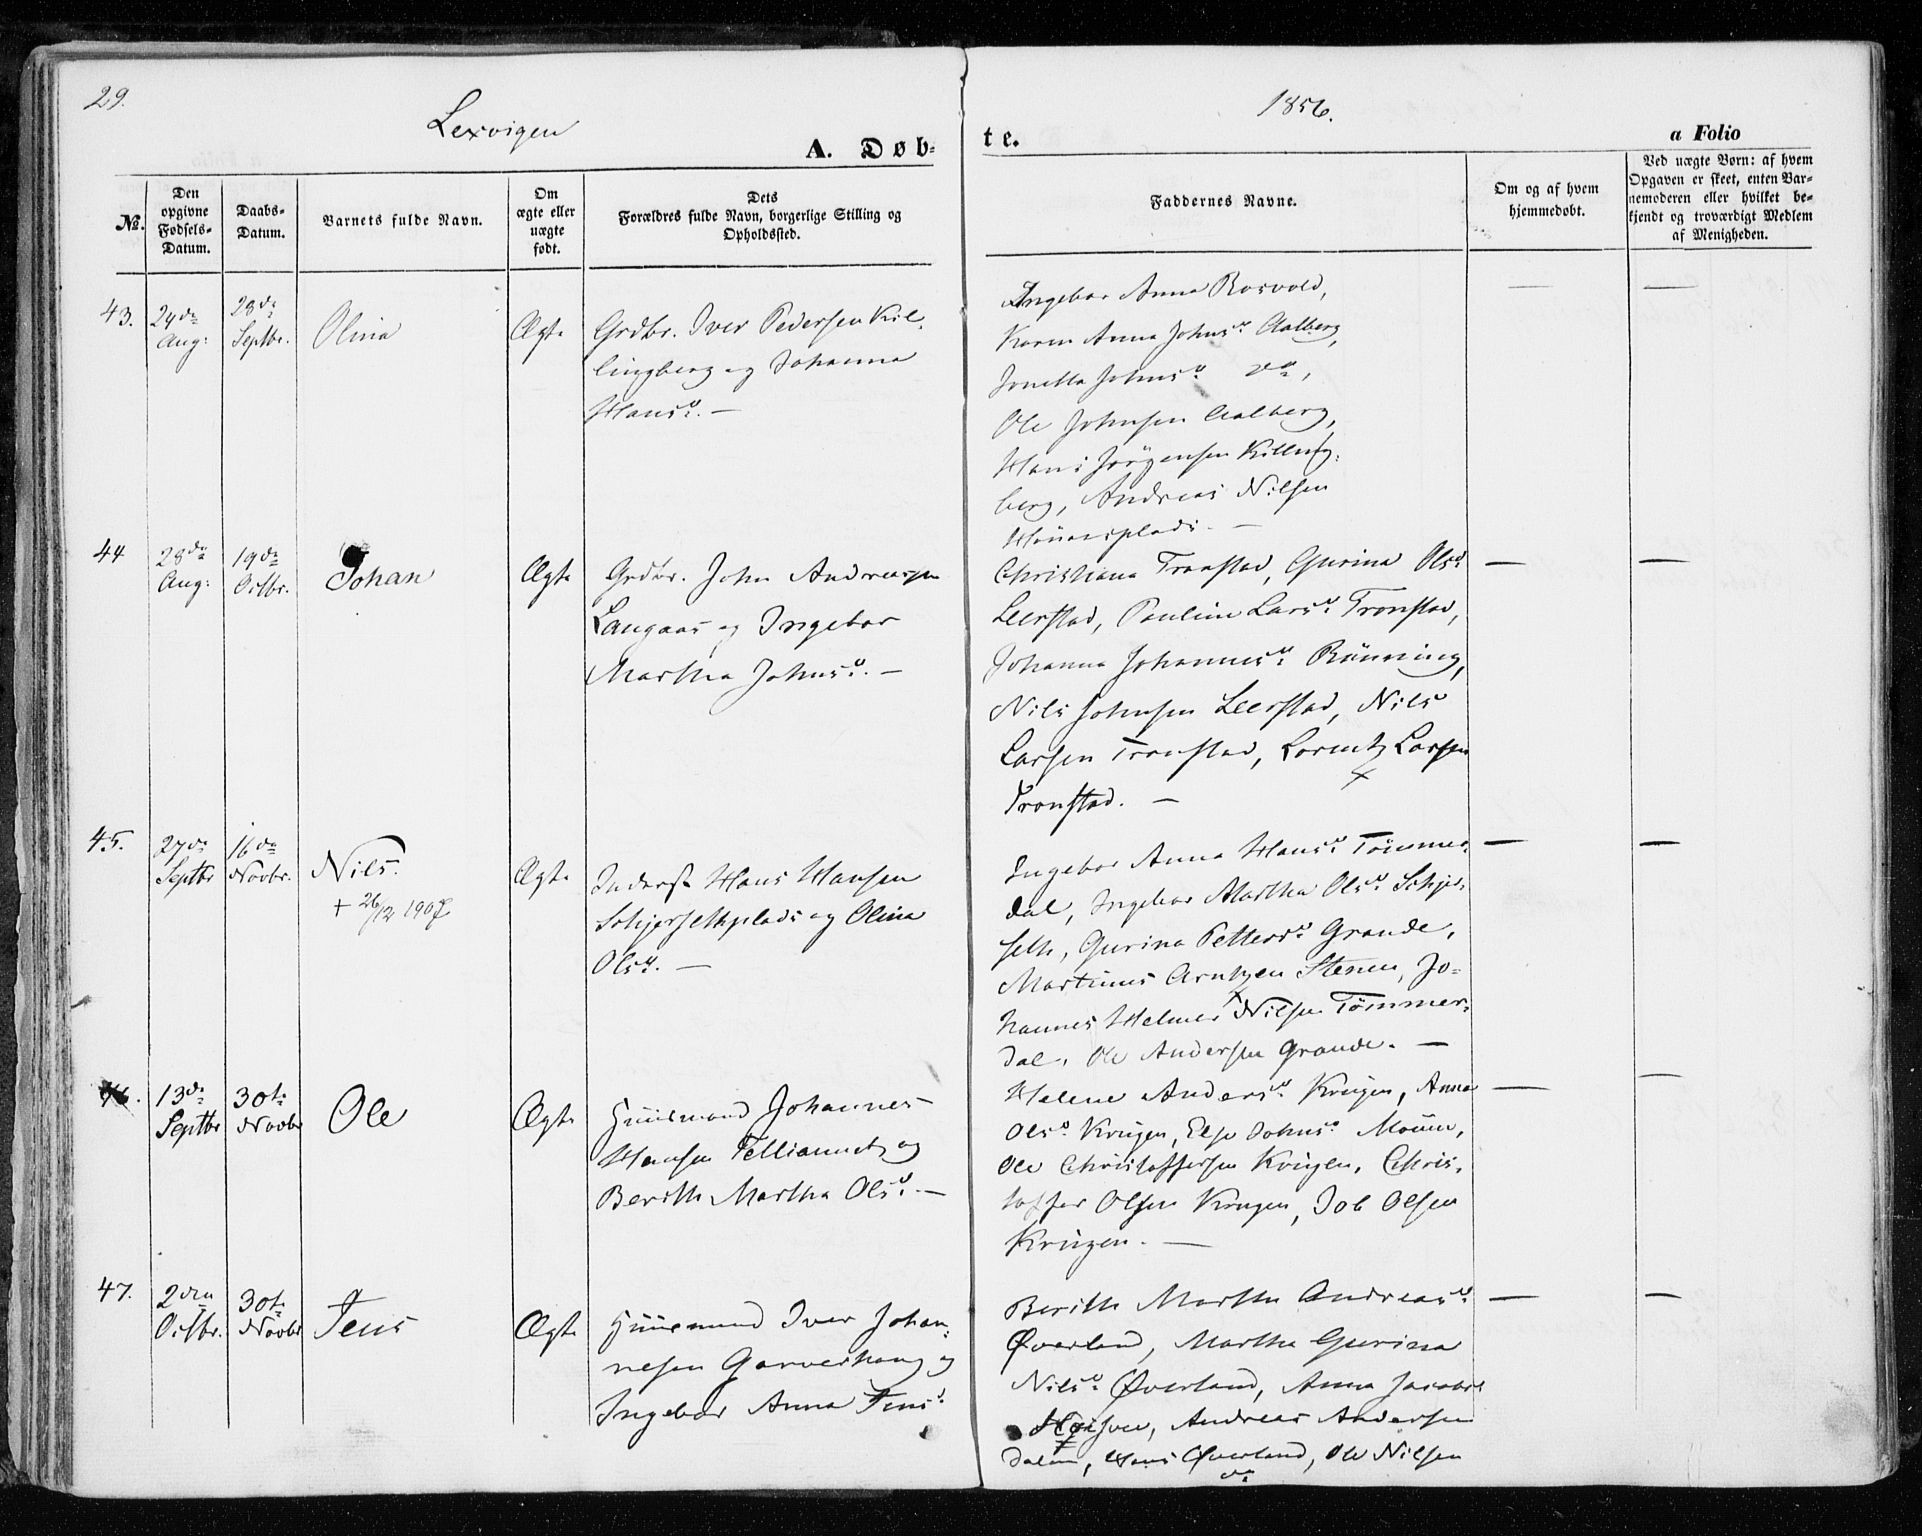 29.
Lexvigen
1856.
A. Døb-
te.
a Folio
No.
Den opgivne Fødsels-Datum.
Daabs-Datum.
Barnets fulde Navn.
Om ægte eller uægte født.
Dets Forældres fulde Navn, borgerlige Stilling og Opholdssted.
Faddernes Navne.
Om og af hvem hjemmedøbt.
Ved uægte Børn: af hvem Opgaven er skeet, enten Barnemoderen eller hvilket bekjendt og troværdigt Medlem af Menigheden.
43.
24de Aug:
28de Septbr.
Olina
Ægte
Grdbr. Iver Pedersen Kil-
lingberg og Johanna
Hansd. —
Ingebor Anna Rosvold,
Karen Anna Johnsd. Aalberg,
Jonetta Johnsd. do,
Ole Johnsen Aalberg,
Hans Jørgensen Killing-
berg, Andreas Nilsen
—
—
44
28de Aug:
19de Octbr.
Johan
Ægte
Grdbr. John Andreasen
Langaas og Ingebor
Martha Johnsd. —
Christiana Tronstad, Gurina Olsd.
Leerstad, Pauline Larsd. Tronstad,
Johanna Johannesd. Rönning,
Nils Johnsen Leerstad, Nils
Larsen Tronstad, Lorentz Larsen
Tronstad. —
—
—
45.
27de Septbr
16de Novbr.
Nils.
+ 26/12 1907
Ægte
Inderst Hans Hansen
Schjerfethplads og Olina
Olsd. —
Ingebor Anna Hansd. Tömmer-
dal, Ingebor Martha Olsd. Schjer-
feth, Gurina Pettersd. Grande,
Martinus Arntzen Stenen, Jo-
hannes Helmer Nilsen Tömmer-
dal, Ole Andersen Grande. —
—
—
46.
13de Septbr
30te Novbr
Ole
Ægte
Huusmand Johannes
Hansen og
Berith Martha Olsd. —
Helene Andersd. Krugen, Anna
Olsd. Krugen, Else Johnsd. Mouum,
Ole Christoffersen Krugen, Chris-
toffer Olsen Krugen, Job Olsen
Krugen. —
—
—
47.
2den Octbr.
30te Novbr
Jens
Ægte
Huusmand Iver Johan-
nesen Garverhaug og
Ingebor Anna Jensd.
Berith Martha Andreasd.
Øverland, Martha Gurina
Nilsd. Øverland, Anna Jacobsd
Andreas Andersen
Dalen, Hans Øverland, Ole Nilsen
do
—
—